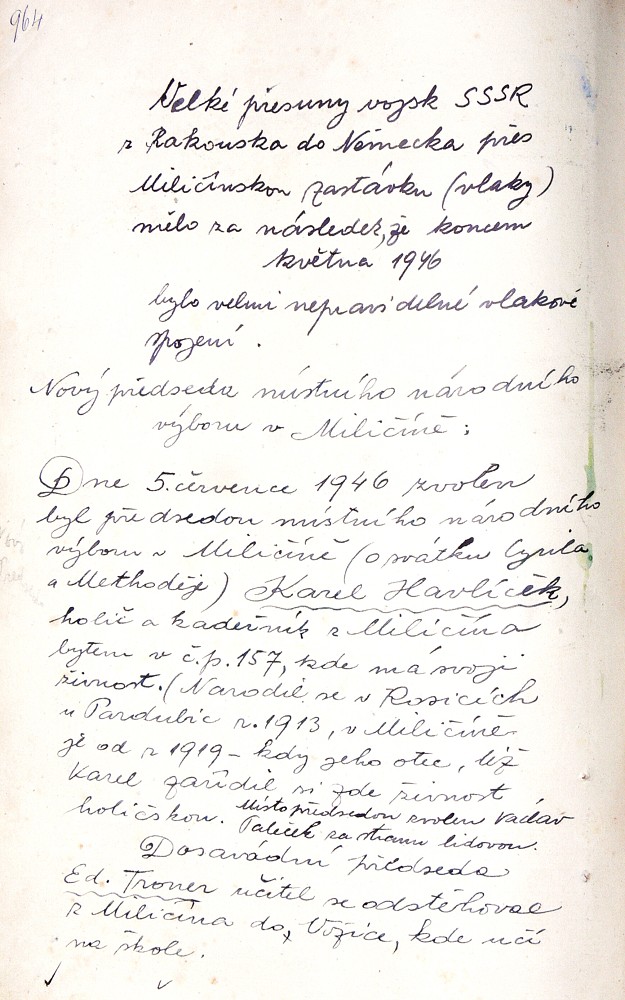 964
Velké přesuny vojsk SSSR
z Rakouska do Německa přes
Miličínskou zastávku (vlaky)
mělo za následek, že koncem
května 1946
bylo velmi nepravidelné vlakové
spojení.
Nový předseda místního národního
výboru v Miličíně:
Dne 5. července 1946 zvolen
byl předsedou místního národního
výboru v Miličíně (o svátku Cyrila
a Methoděje) Karel Havlíček,
holič a kadeřník z Miličína
bytem v č.p. 157, kde má svoji
živnost. (Narodil se v Rosicích
u Pardubic r. 1913, v Miličíně
je od r 1919 - kdy jeho otec, též
Karel zařídil si zde živnost
holičskou. Místopředsedou zvolen Václav
Paleček za stranu lidovou.
Dosavádní předseda
Ed. Troner učitel se odstěhoval
z Miličína do Vožice, kde učí
na škole.